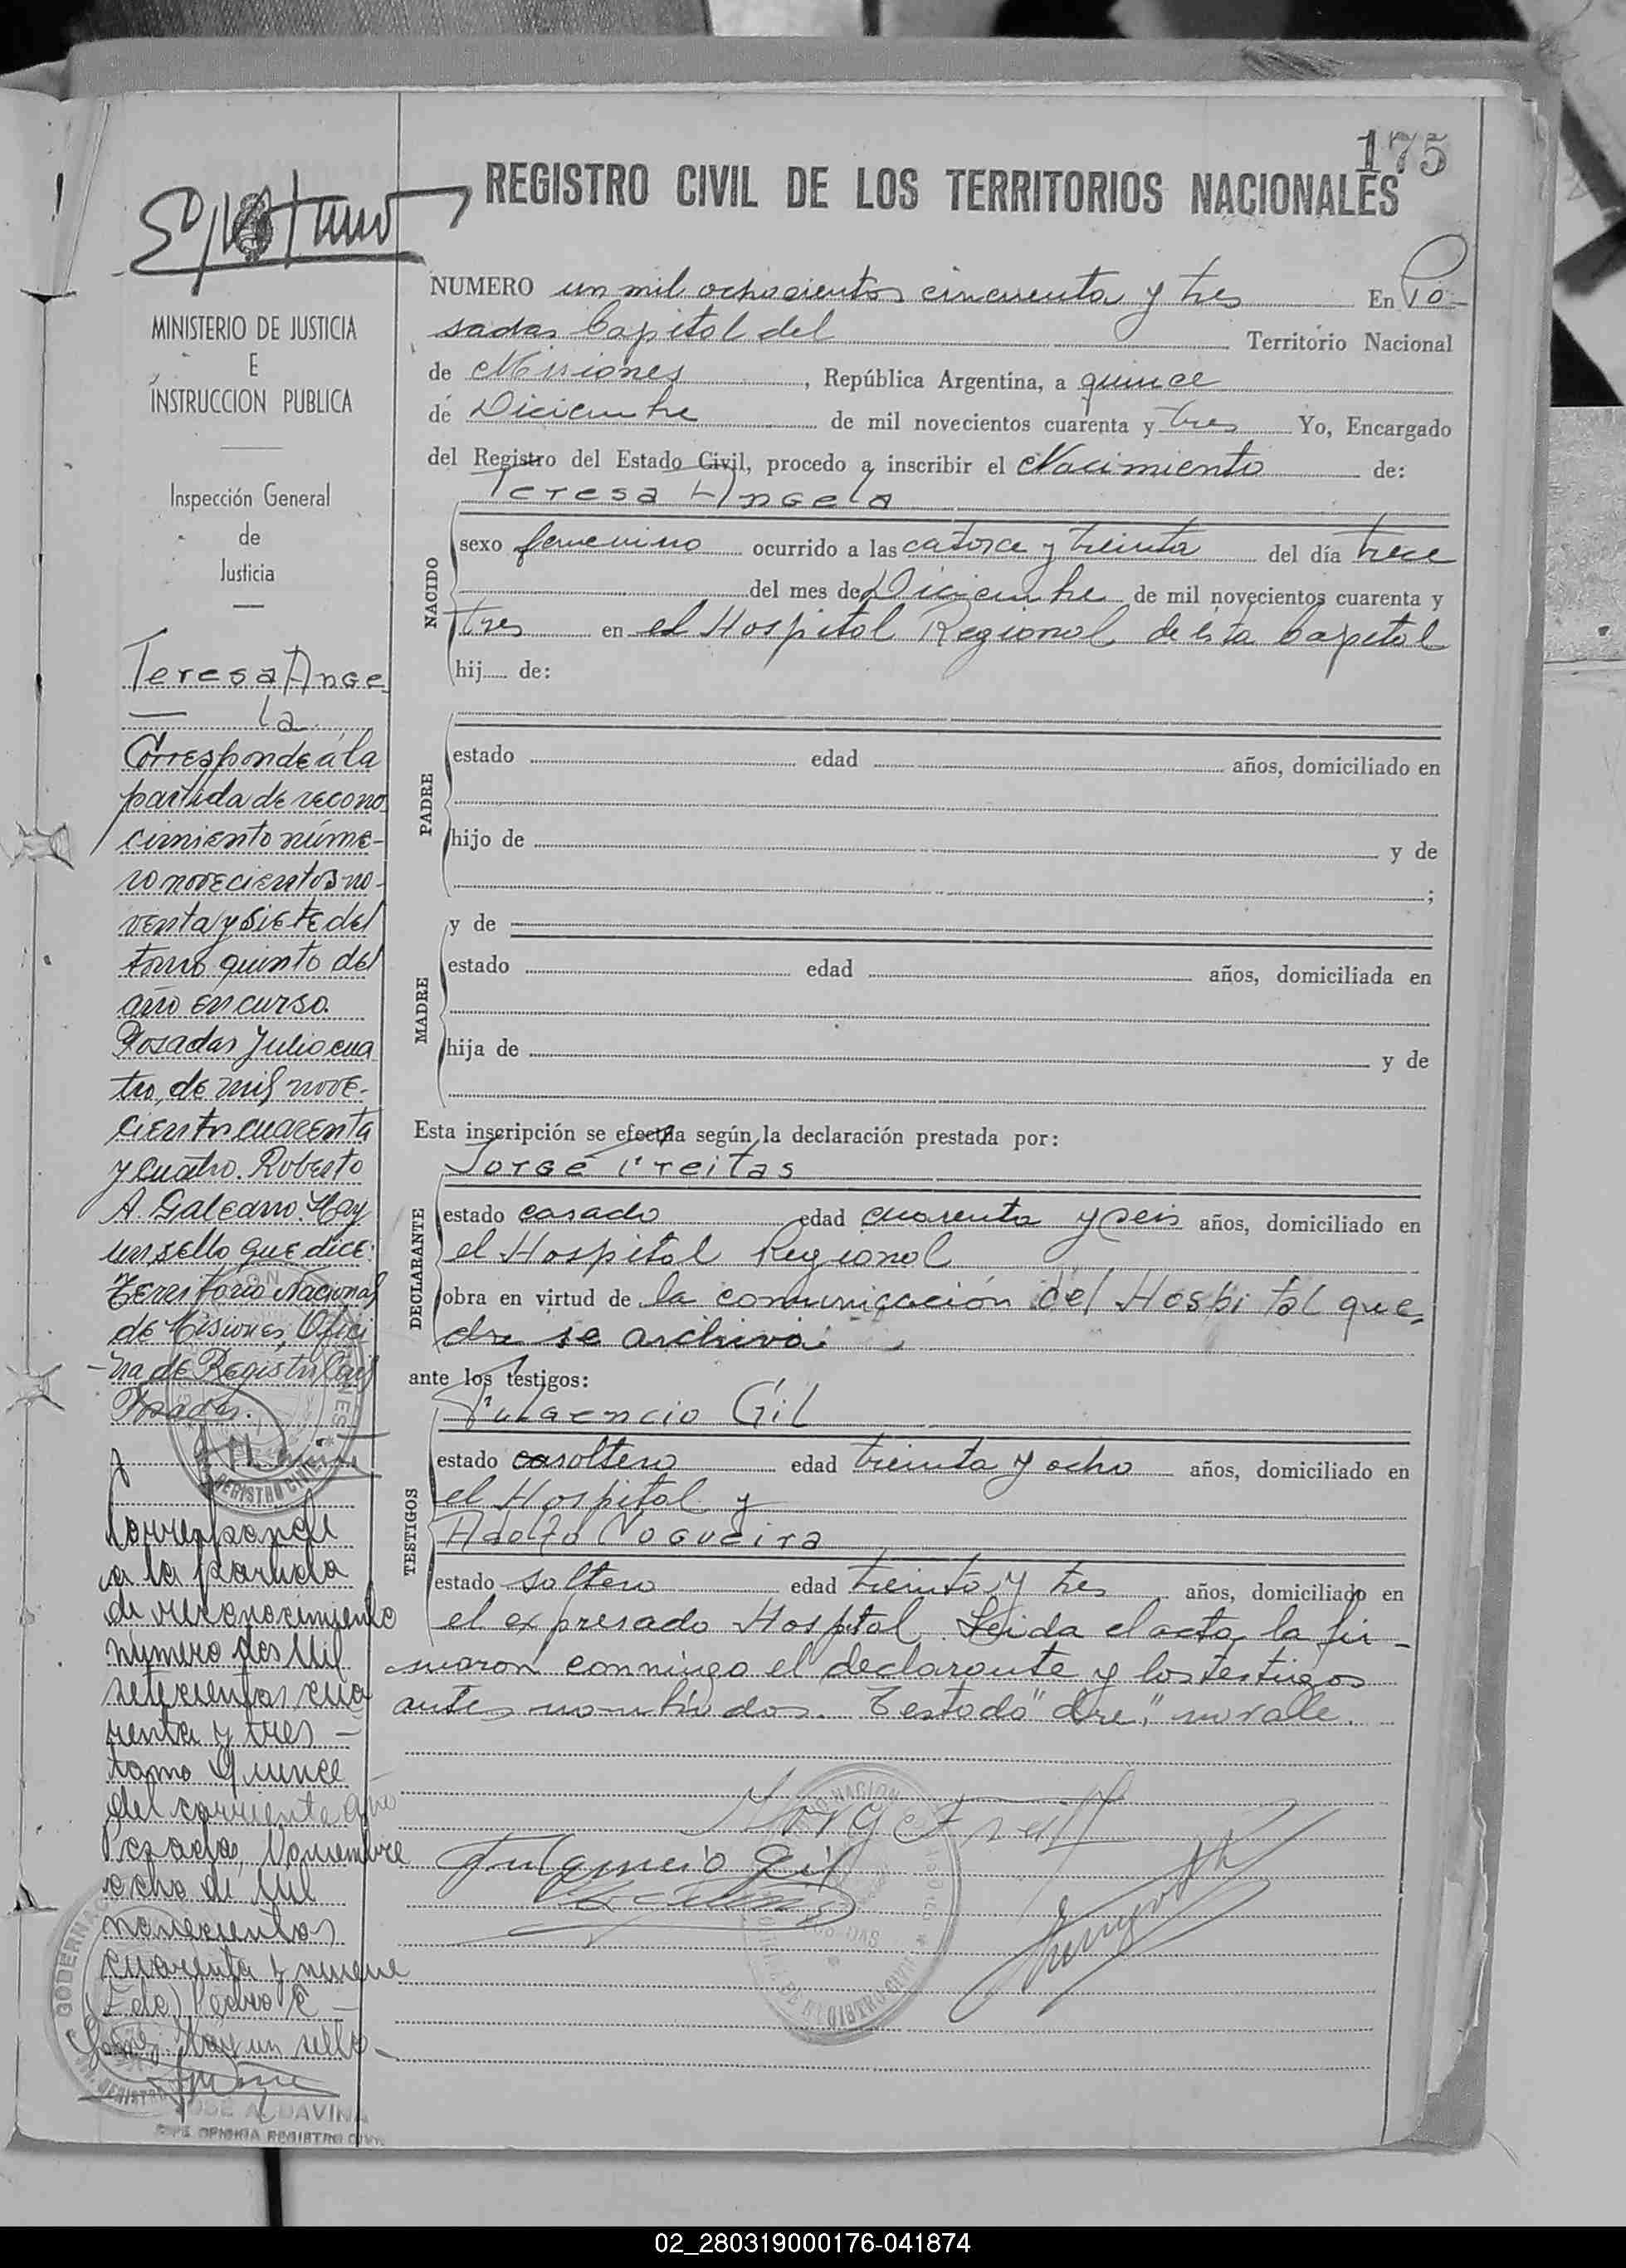 175
REGISTRO CIVIL DE LOS TERRITORIOS NACIONALES
NUMERO un mil ochocientos cincuenta y tres En Po-
sadas Capital del Territorio Nacional
de Misiones, República Argentina, a quince
de Diciembre de mil novecientos cuarenta y tres Yo, Encargado
del Registro del Estado Civil, procedo a inscribir el Nacimiento de:
Teresa Angela
NACIDO
sexo femenino ocurrido a las catorce y treinta del día trece
del mes de Diciembre de mil novecientos cuarenta y
tres en el Hospital Regional de esta Capital
hij de:
PADRE
estado edad años, domiciliado en
hijo de y de
;
MADRE
y de
estado edad años, domiciliada en
hija de y de
Esta inscripción se efectúa según la declaración prestada por:
DECLARANTE
Jorge Freitas
estado casado edad cuarenta y seis años, domiciliado en
el Hospital Regional
obra en virtud de la comunicación del Hospital que
dre se archiva.
ante los testigos:
TESTIGOS
Fulgencio Gil
estado casoltero edad treinta y ocho años, domiciliado en
el Hospital y
Adolfo Nogueira
estado soltero edad treinta y tres años, domiciliado en
el expresado Hospital. Leida el acta, la fir-
maron conmigo el declarante y los testigos
antes nombrados. Testado "dre", no vale.
Fulgencio Gil
MINISTERIO DE JUSTICIA
E
INSTRUCCION PUBLICA
Inspección General
de
Justicia
Teresa Ange
la
Corresponde á la
partida de recono
cimiento núme-
ro novecientos no-
venta y siete del
tomo quinto del
año en curso.
Posadas Julio cua
tro, de mil nove-
cientos cuarenta
y cuatro. Roberto
A. Galeano. Hay
un sello que dice:
Territorio Nacional
de Misiones, Ofici
na de Registro Civil
Posadas.
Corresponde
a la partida
de reconocimiento
número dos mil
setecientos cua
renta y tres -
tomo Quince
del corriente año
Posadas, Noviembre
ocho de mil
novecientos
cuarenta y nueve
(Fdo) Pedro E
Gomez. Hay un sello
02_280319000176-041874